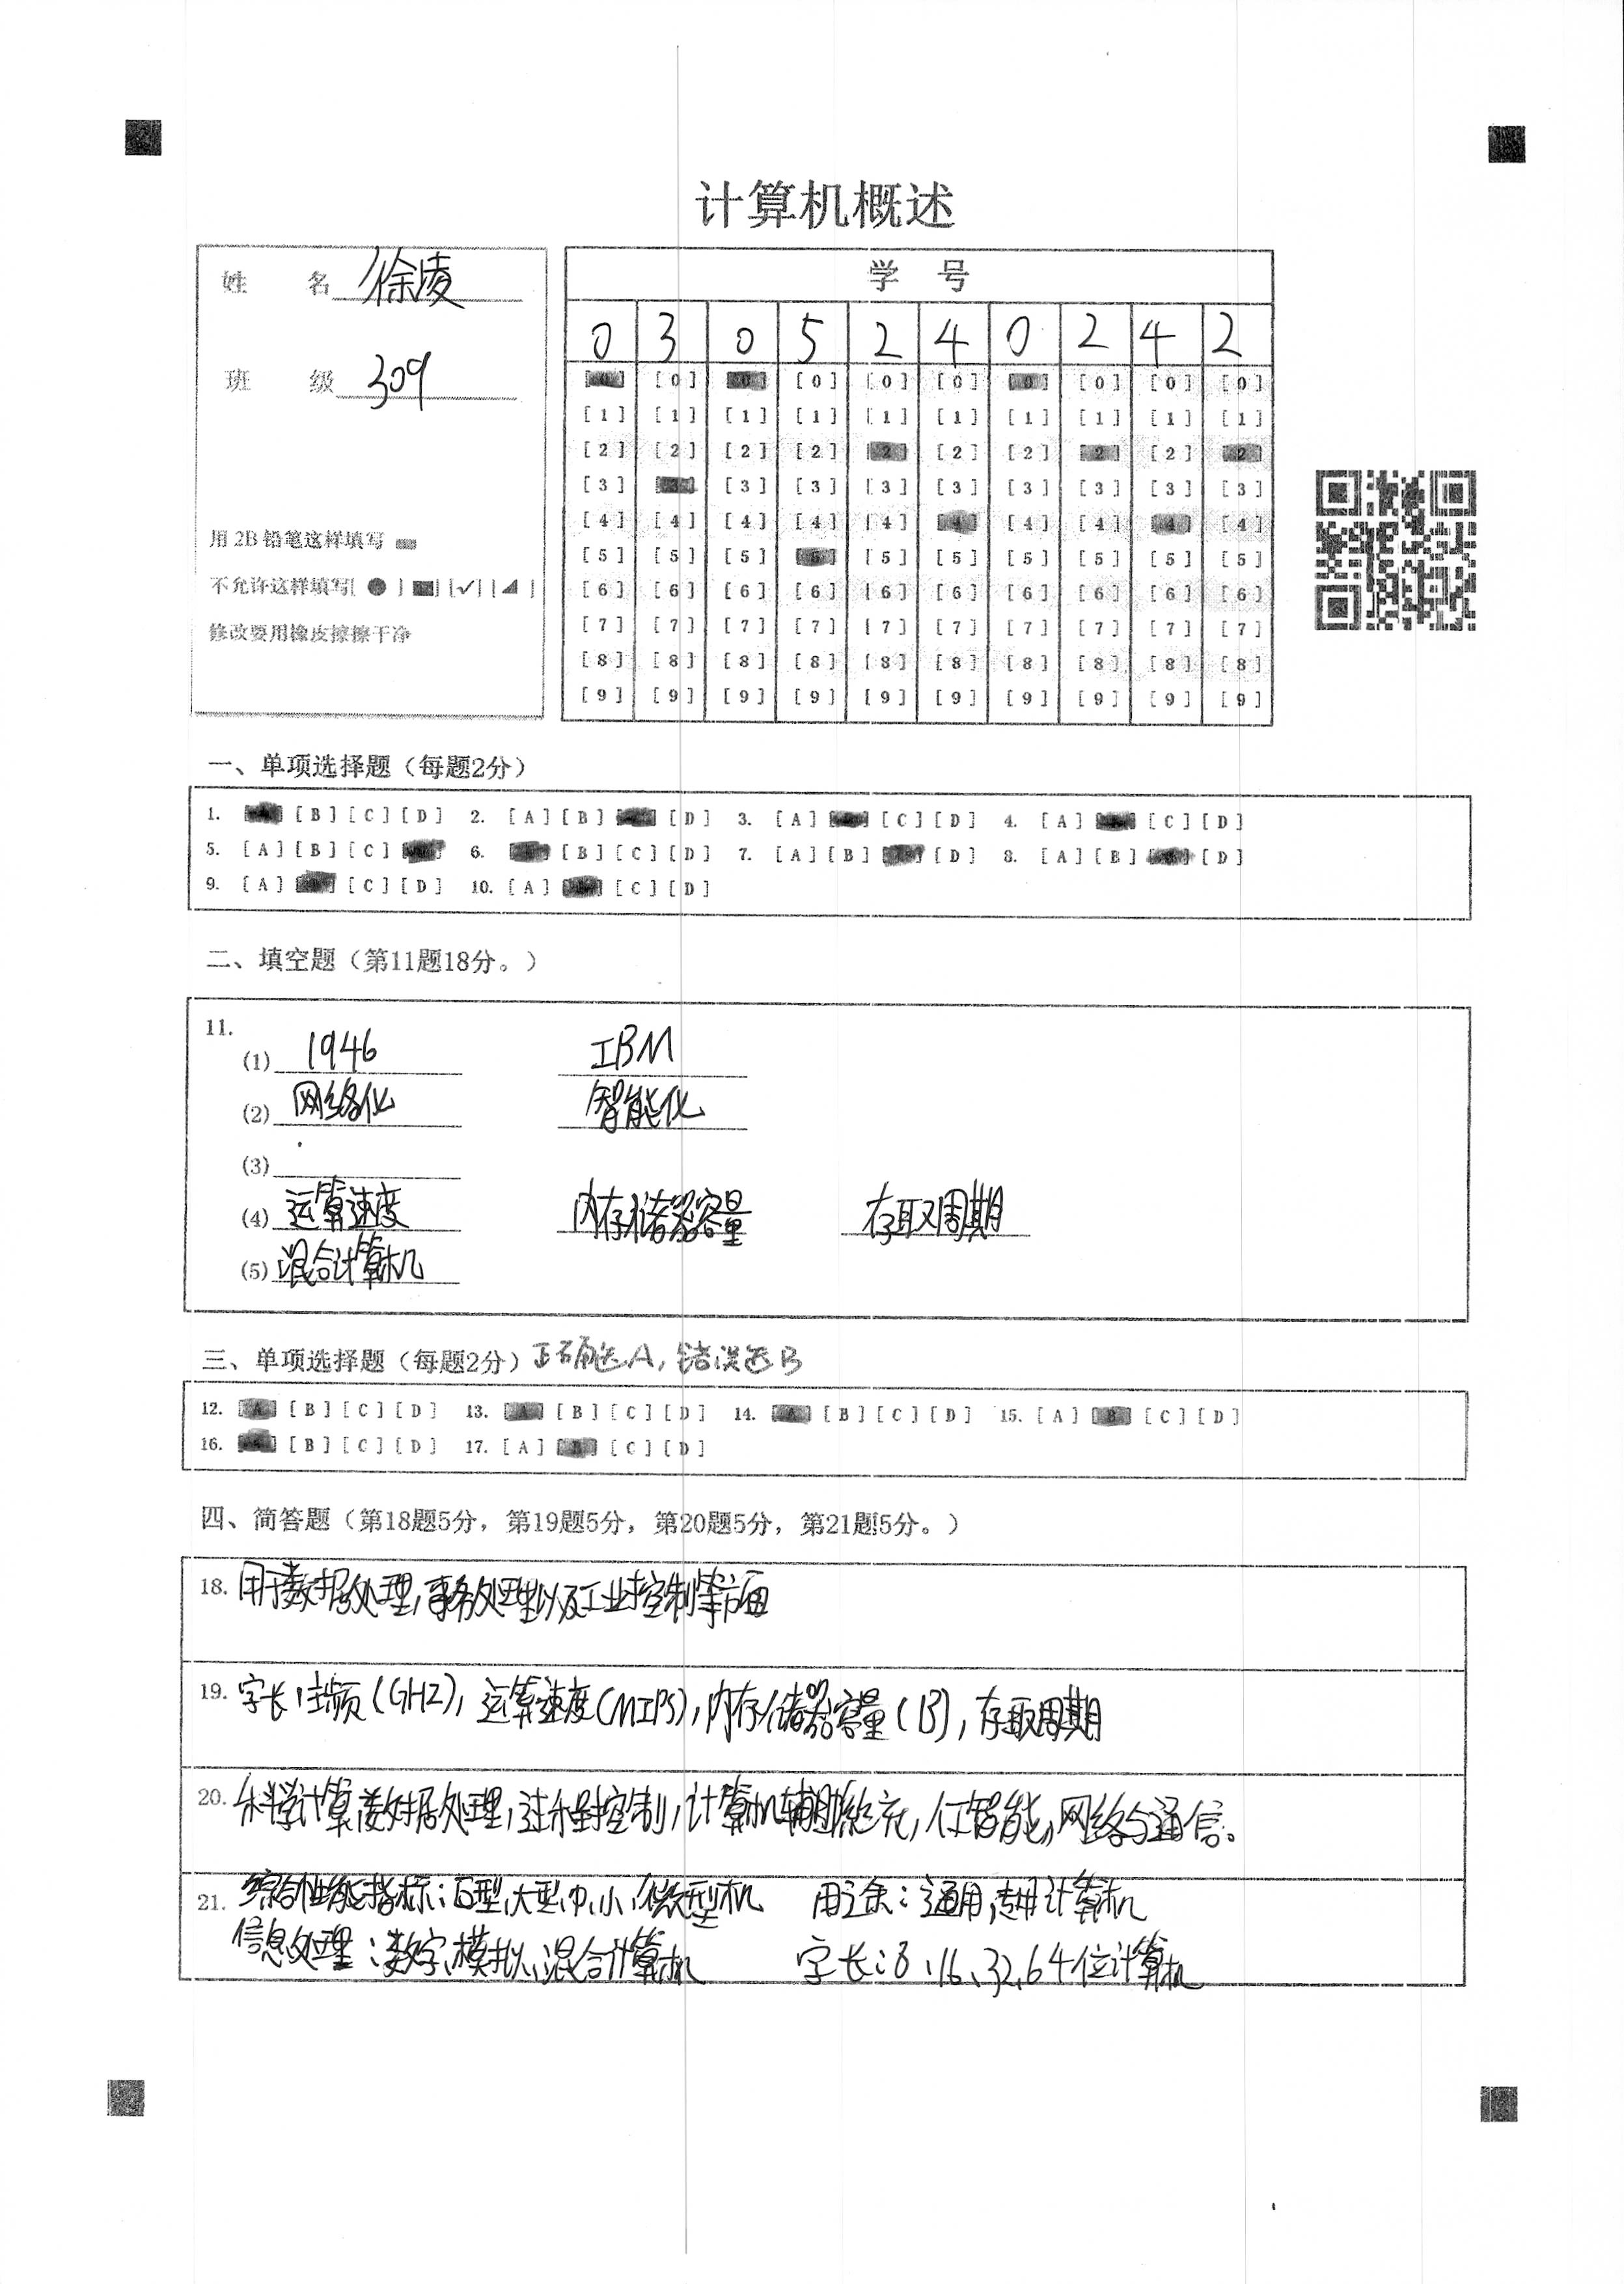 计算机概述
姓 名 徐凌
班 级 309
用 2B 铅笔这样填写
不允许这样填写[ ● ] [■] [✓] [◢ ]
修改要用橡皮擦擦干净
学 号
0 3 0 5 2 4 0 2 4 2
[0] [0] [0] [0] [0] [0] [0] [0] [0] [0]
[1] [1] [1] [1] [1] [1] [1] [1] [1] [1]
[2] [2] [2] [2] [2] [2] [2] [2] [2] [2]
[3] [3] [3] [3] [3] [3] [3] [3] [3] [3]
[4] [4] [4] [4] [4] [4] [4] [4] [4] [4]
[5] [5] [5] [5] [5] [5] [5] [5] [5] [5]
[6] [6] [6] [6] [6] [6] [6] [6] [6] [6]
[7] [7] [7] [7] [7] [7] [7] [7] [7] [7]
[8] [8] [8] [8] [8] [8] [8] [8] [8] [8]
[9] [9] [9] [9] [9] [9] [9] [9] [9] [9]
一、单项选择题（每题2分）
1. [B] [C] [D] 2. [A] [B] [D] 3. [A] [C] [D] 4. [A] [C] [D]
5. [A] [B] [C] 6. [B] [C] [D] 7. [A] [B] [D] 8. [A] [B] [D]
9. [A] [C] [D] 10. [A] [C] [D]
二、填空题（第11题18分。）
11.
(1) 1946 IBM
(2) 网络化 智能化
(3)
(4) 运算速度 内存储器容量 存取周期
(5) 混合计算机
三、单项选择题（每题2分）正确选A，错误选B
12. [A] [B] [C] [D] 13. [A] [B] [C] [D] 14. [A] [B] [C] [D] 15. [A] [B] [C] [D]
16. [A] [B] [C] [D] 17. [A] [B] [C] [D]
四、简答题（第18题5分，第19题5分，第20题5分，第21题5分。）
18. 用于数据处理，事务处理以及工业控制等方面
19. 字长，主频（GHZ），运算速度（MIPS），内存储器容量（B），存取周期
20. 科学计算，数据处理，过程控制，计算机辅助系统，人工智能，网络与通信。
21. 综合性能指标：巨型、大型、中、小、微型机 用途：通用、专用计算机
信息处理：数字、模拟、混合计算机 字长：8、16、32、64位计算机